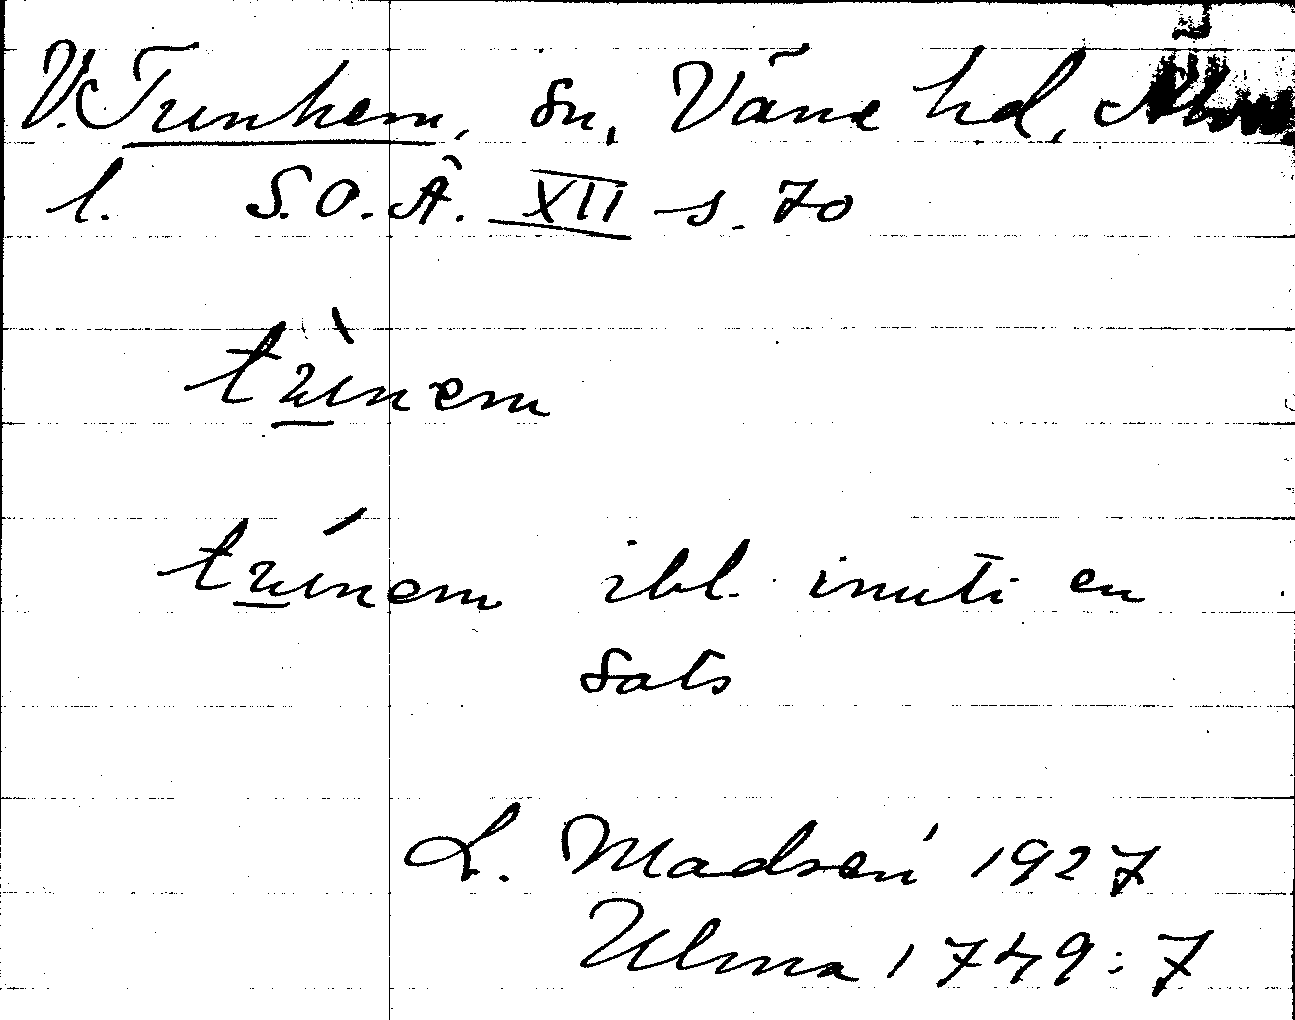 V. Trunhem, sn, Väne hd,
l. S.O.Ä. XII s. 70
trùnem
trúnem ibl. inuti en
sats
L. Madsén 1927
Ulma 1749:7